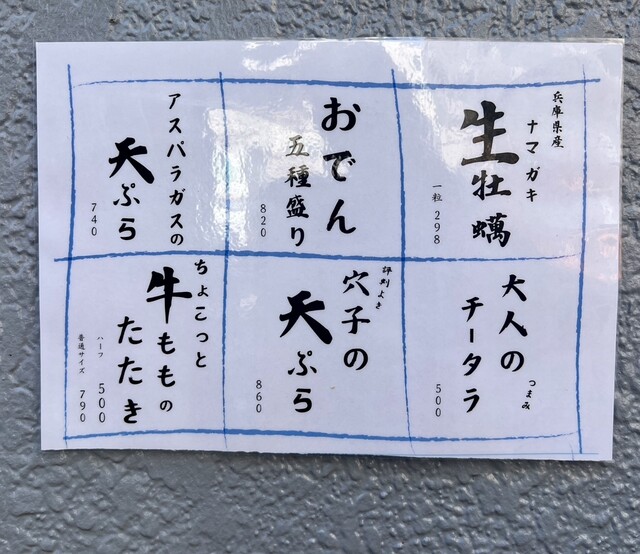 兵庫県産
ナマガキ
生牡蠣
一粒 298
おでん
五種盛り
820
アスパラガスの
天ぷら
740
大人の
つまみ
チータラ
500
評判よき
穴子の
天ぷら
860
ちょこっと
牛ももの
たたき
ハーフ 500
普通サイズ 790